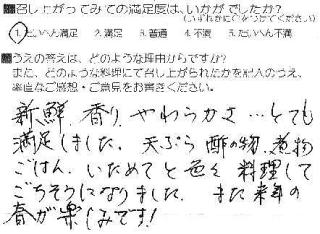 ■召し上がってみての満足度は、いかがでしたか?
(いずれかに○をつけてください)
1.たいへん満足 2.満足 3.普通 4.不満 5.たいへん不満
■うえの答えは、どのような理由からですか?
また、どのような料理にて召し上がられたかを記入のうえ、
率直なご感想・ご意見をお書きください。
新鮮、香り、やわらかさ…とても
満足しました。天ぷら 酢の物、煮物
ごはん、いためてと色々料理して
ごちそうになりました。また来年の
春が楽しみです!